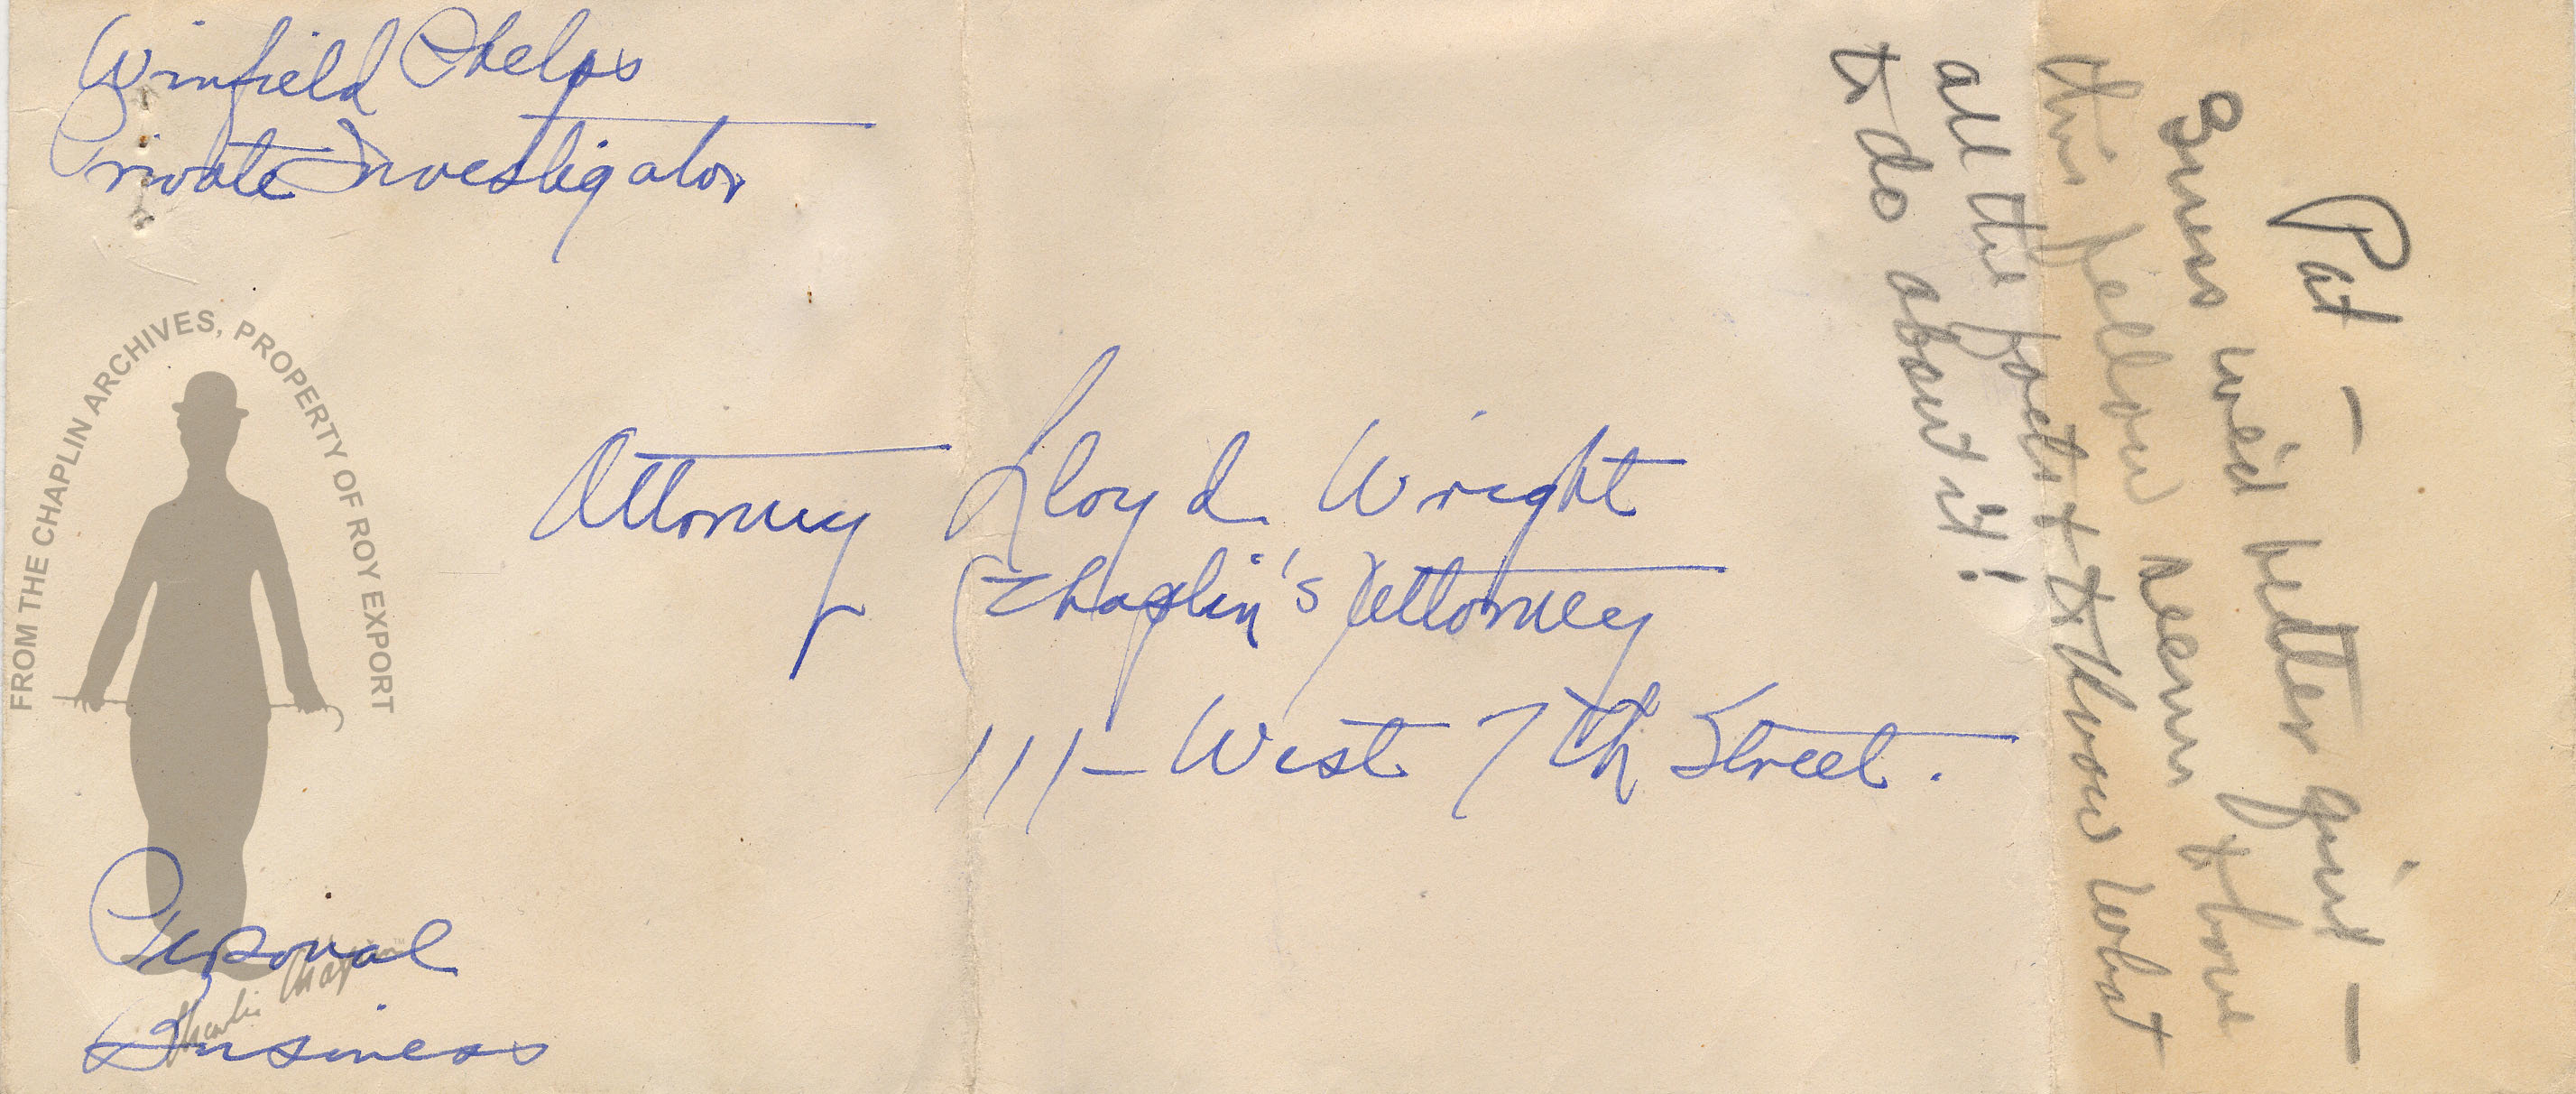 Winfield Phelps
Private Investigator
FROM THE CHAPLIN ARCHIVES, PROPERTY OF ROY EXPORT
Attorney Lloyd Wright
(Chaplin's) Attorney
111 - West 7th Street.
Personal
Business
Charlie Chaplin
Pat —
Guess we'd better quit —
this fellow seems to have
all the facts & to know what
to do about it!